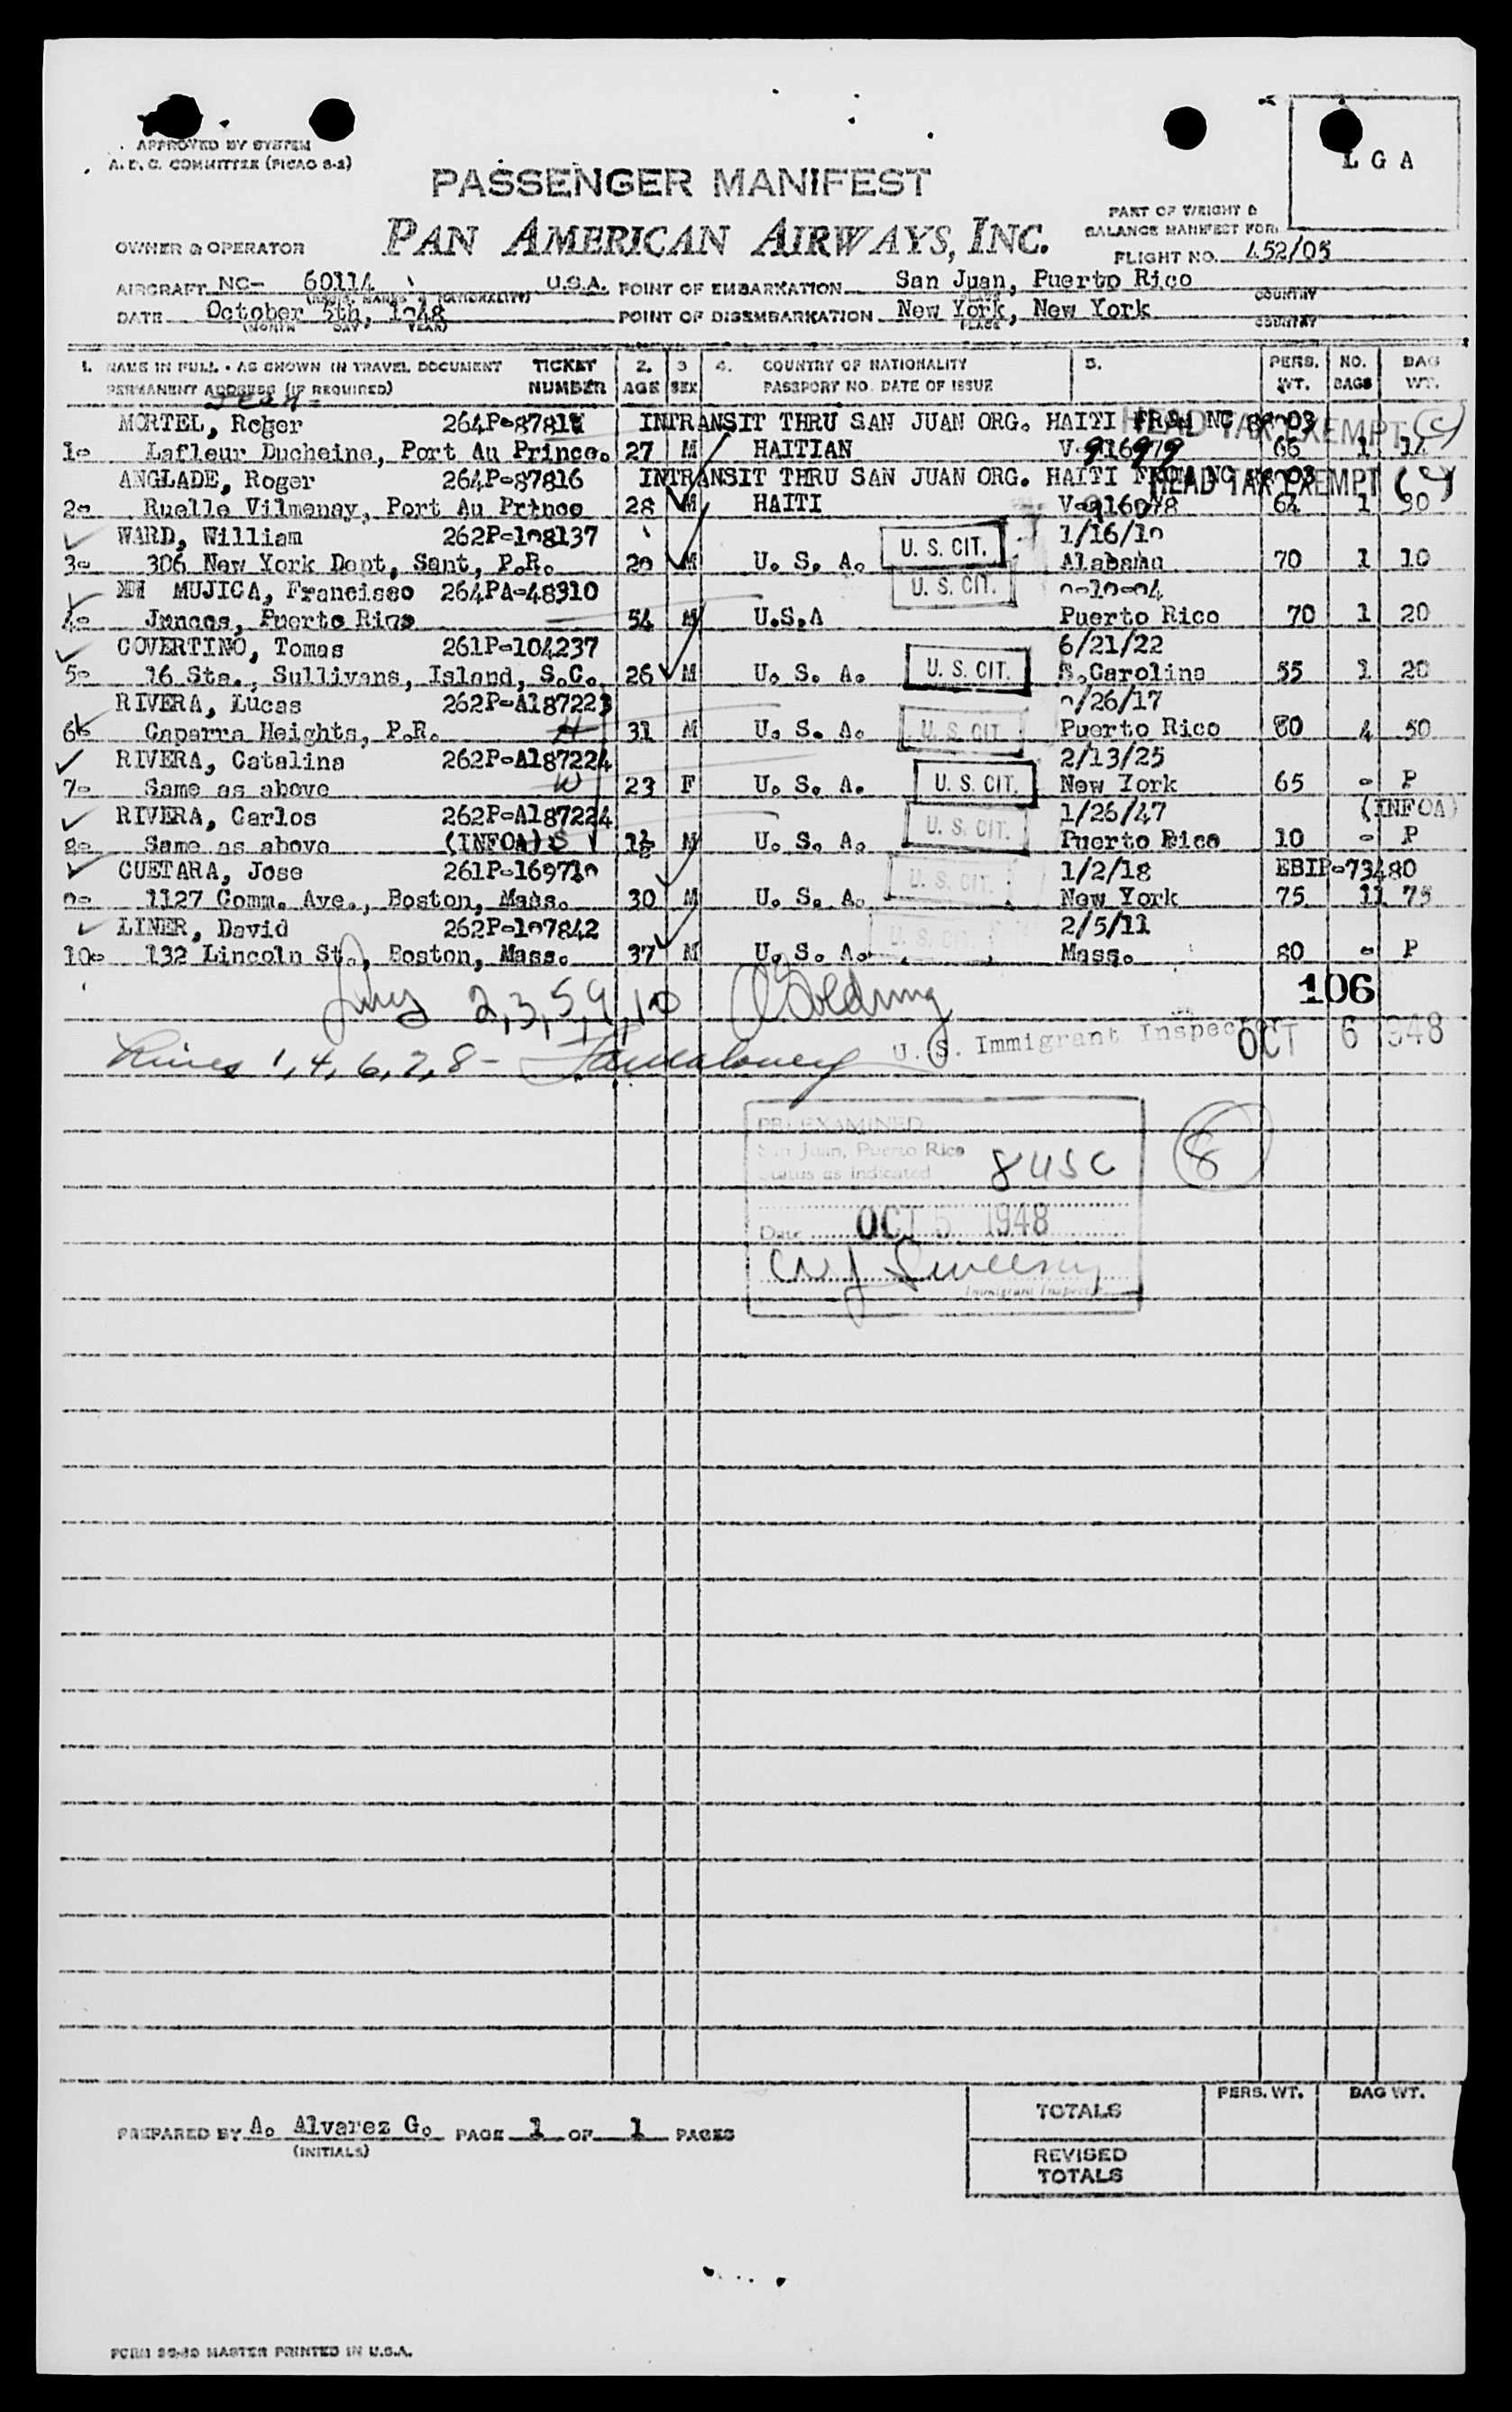 APPROVED BY SYSTEM
A.D.C. COMMITTEE (PICAO S-2)
L G A
PASSENGER MANIFEST
PART OF WEIGHT &
BALANCE MANIFEST FOR:
PAN AMERICAN AIRWAYS, INC.
OWNER & OPERATOR
FLIGHT NO. 452/05
AIRCRAFT NC- 60114 U.S.A. POINT OF EMBARKATION San Juan, Puerto Rico
COUNTRY
DATE October 5th, 1948 POINT OF DISEMBARKATION New York, New York
(MONTH DAY YEAR) PLACE COUNTRY
1. NAME IN FULL - AS SHOWN IN TRAVEL DOCUMENT TICKET 2. 3 4. COUNTRY OF NATIONALITY 5. PERS. NO. BAG
PERMANENT ADDRESS (IF REQUIRED) NUMBER AGE SEX PASSPORT NO. DATE OF ISSUE WT. BAGS WT.
Jean
MORTEL, Roger 264P-8781 INTRANSIT THRU SAN JUAN ORG. HAITI FROM NC 88903 HEAD TAX EXEMPT
1- Lafleur Ducheine, Port Au Prince. 27 M HAITIAN V-916979 66 1 14
ANGLADE, Roger 264P-87816 INTRANSIT THRU SAN JUAN ORG. HAITI FROM NC 88903 HEAD TAX EXEMPT
2- Ruelle Vilmenay, Port Au Prince 28 M HAITI V-916978 64 1 30
WARD, William 262P-198137 1/16/19
3- 306 New York Dept, Sant, P.R. 29 M U. S. A. U. S. CIT. Alabama 70 1 10
MUJICA, Francisco 264PA-48310 U. S. CIT. 9-19-94
4- Juncos, Puerto Rico 54 M U.S.A Puerto Rico 70 1 20
COVERTINO, Tomas 261P-104237 6/21/22
5- 16 Sta., Sullivans, Island, S.C. 26 M U. S. A. U. S. CIT. S.Carolina 55 1 20
RIVERA, Lucas 262P-A187223 9/26/17
6- Caparra Heights, P.R. H 31 M U. S. A. U. S. CIT. Puerto Rico 80 4 50
RIVERA, Catalina 262P-A187224 2/13/25
7- Same as above W 23 F U. S. A. U. S. CIT. New York 65 - P
RIVERA, Carlos 262P-A187224 1/26/47 (INFOA)
8- Same as above (INFOA) S M U. S. A. U. S. CIT. Puerto Rico 10 - P
CUETARA, Jose 261P-169719 1/2/18 EBIP-73480
9- 1127 Comm. Ave., Boston, Mass. 30 M U. S. A. U. S. CIT. New York 75 11 75
LINER, David 262P-197842 2/5/11
10- 132 Lincoln St., Boston, Mass. 37 M U. S. A. U. S. CIT. Mass. 80 - P
106
2,3,5,9,10
U. S. Immigrant Inspec
OCT 6 1948
Lines 1, 4, 6, 7, 8 -
PRE-EXAMINED
San Juan, Puerto Rico
Status as indicated
8 USC
8
Date OCT 5 1948
Immigrant Inspector
PERS. WT. BAG WT.
TOTALS
PREPARED BY A. Alvarez G. PAGE 1 OF 1 PAGES
(INITIALS)
REVISED
TOTALS
FORM MASTER PRINTED IN U.S.A.